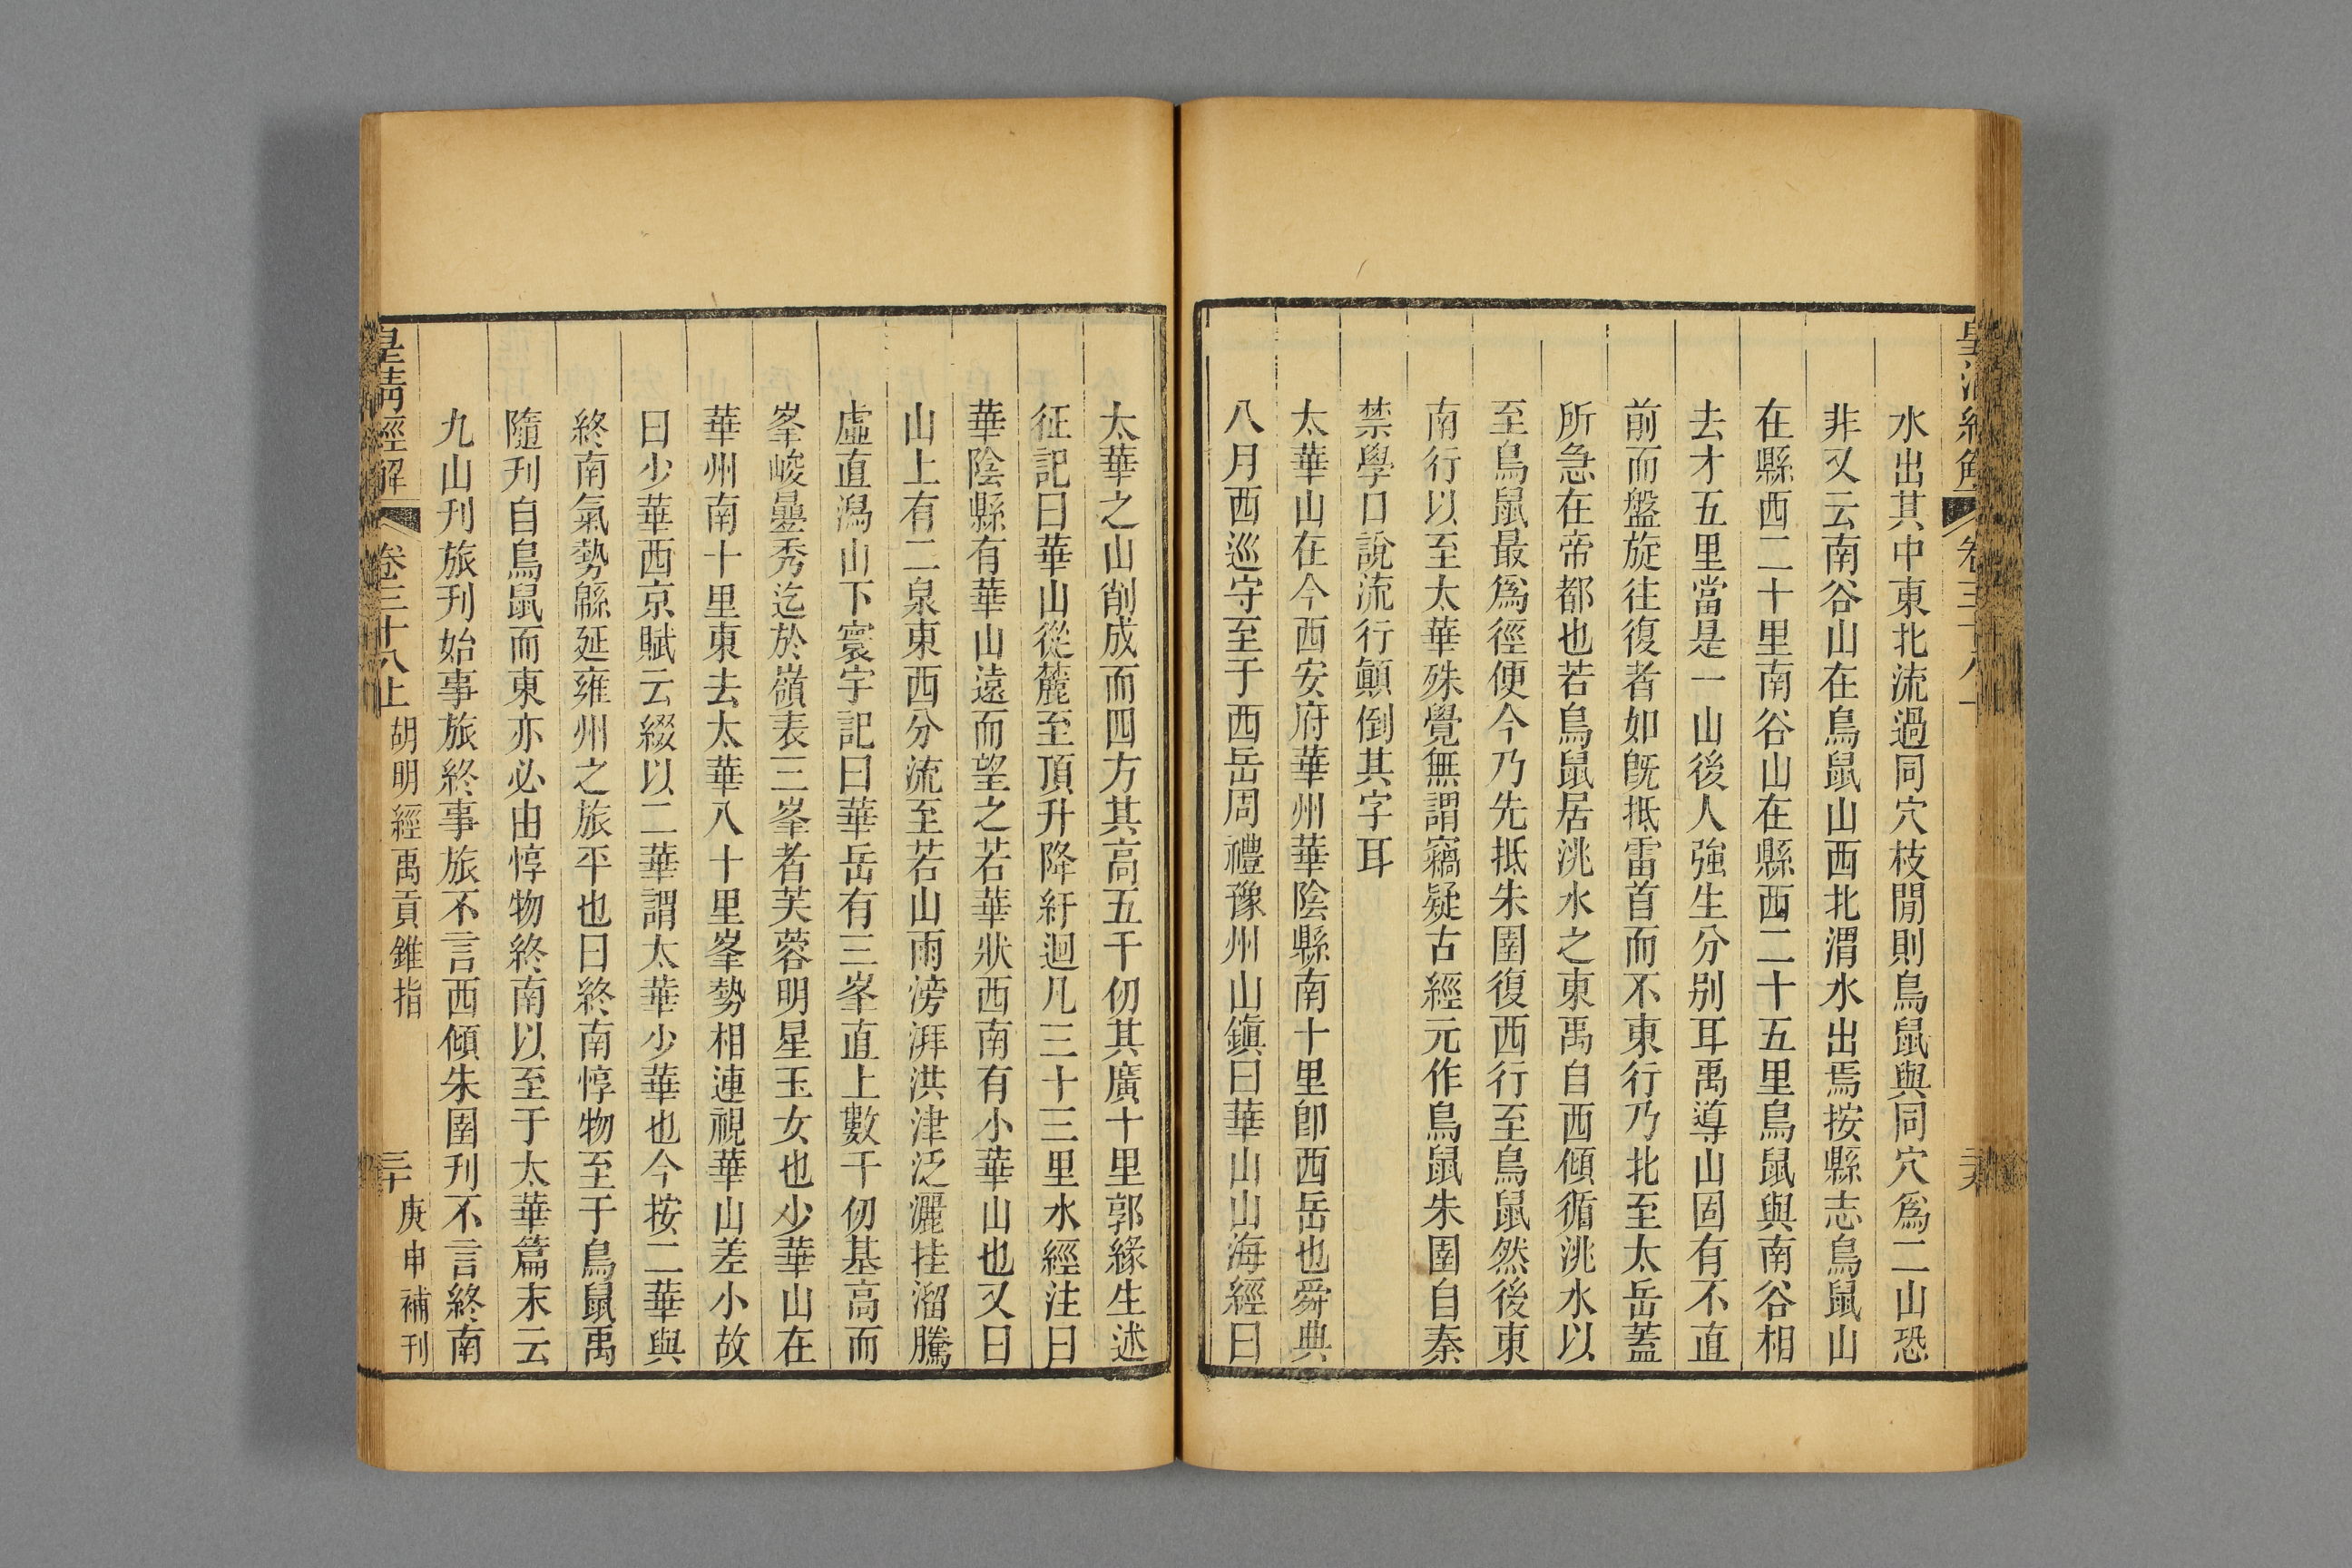 水出其中東北流過同穴枝閒則鳥鼠與同穴爲二山恐
非又云南谷山在鳥鼠山西北渭水出焉按縣志鳥鼠山
在縣西二十里南谷山在縣西二十五里鳥鼠與南谷相
去才五里當是一山後人強生分別耳禹導山固有不直
前而盤旋往復者如旣抵雷首而不東行乃北至太岳蓋
所急在帝都也若鳥鼠居洮水之東禹自西傾循洮水以
至鳥鼠最爲徑便今乃先抵朱圉復西行至鳥鼠然後東
南行以至太華殊覺無謂竊疑古經元作鳥鼠朱圉自秦
禁學口說流行顚倒其字耳
太華山在今西安府華州華陰縣南十里卽西岳也舜典
八月西巡守至于西岳周禮豫州山鎭曰華山山海經曰
太華之山削成而四方其高五千仞其廣十里郭緣生述
征記曰華山從麓至頂升降紆迴凡三十三里水經注曰
華陰縣有華山遠而望之若華狀西南有小華山也又曰
山上有二泉東西分流至若山雨滂湃洪津泛灑挂溜騰
虛直瀉山下寰宇記曰華岳有三峯直上數千仞基高而
峯峻疊秀迄於嶺表三峯者芙蓉明星玉女也少華山在
華州南十里東去太華八十里峯勢相連視華山差小故
曰少華西京賦云綴以二華謂太華少華也今按二華與
終南氣勢緜延雍州之旅平也曰終南惇物至于鳥鼠禹
隨刋自鳥鼠而東亦必由惇物終南以至于太華篇末云
九山刋旅刋始事旅終事旅不言西傾朱圉刋不言終南
皇淸經解 卷三十八上 胡明經禹貢錐指 三十 庚申補刋